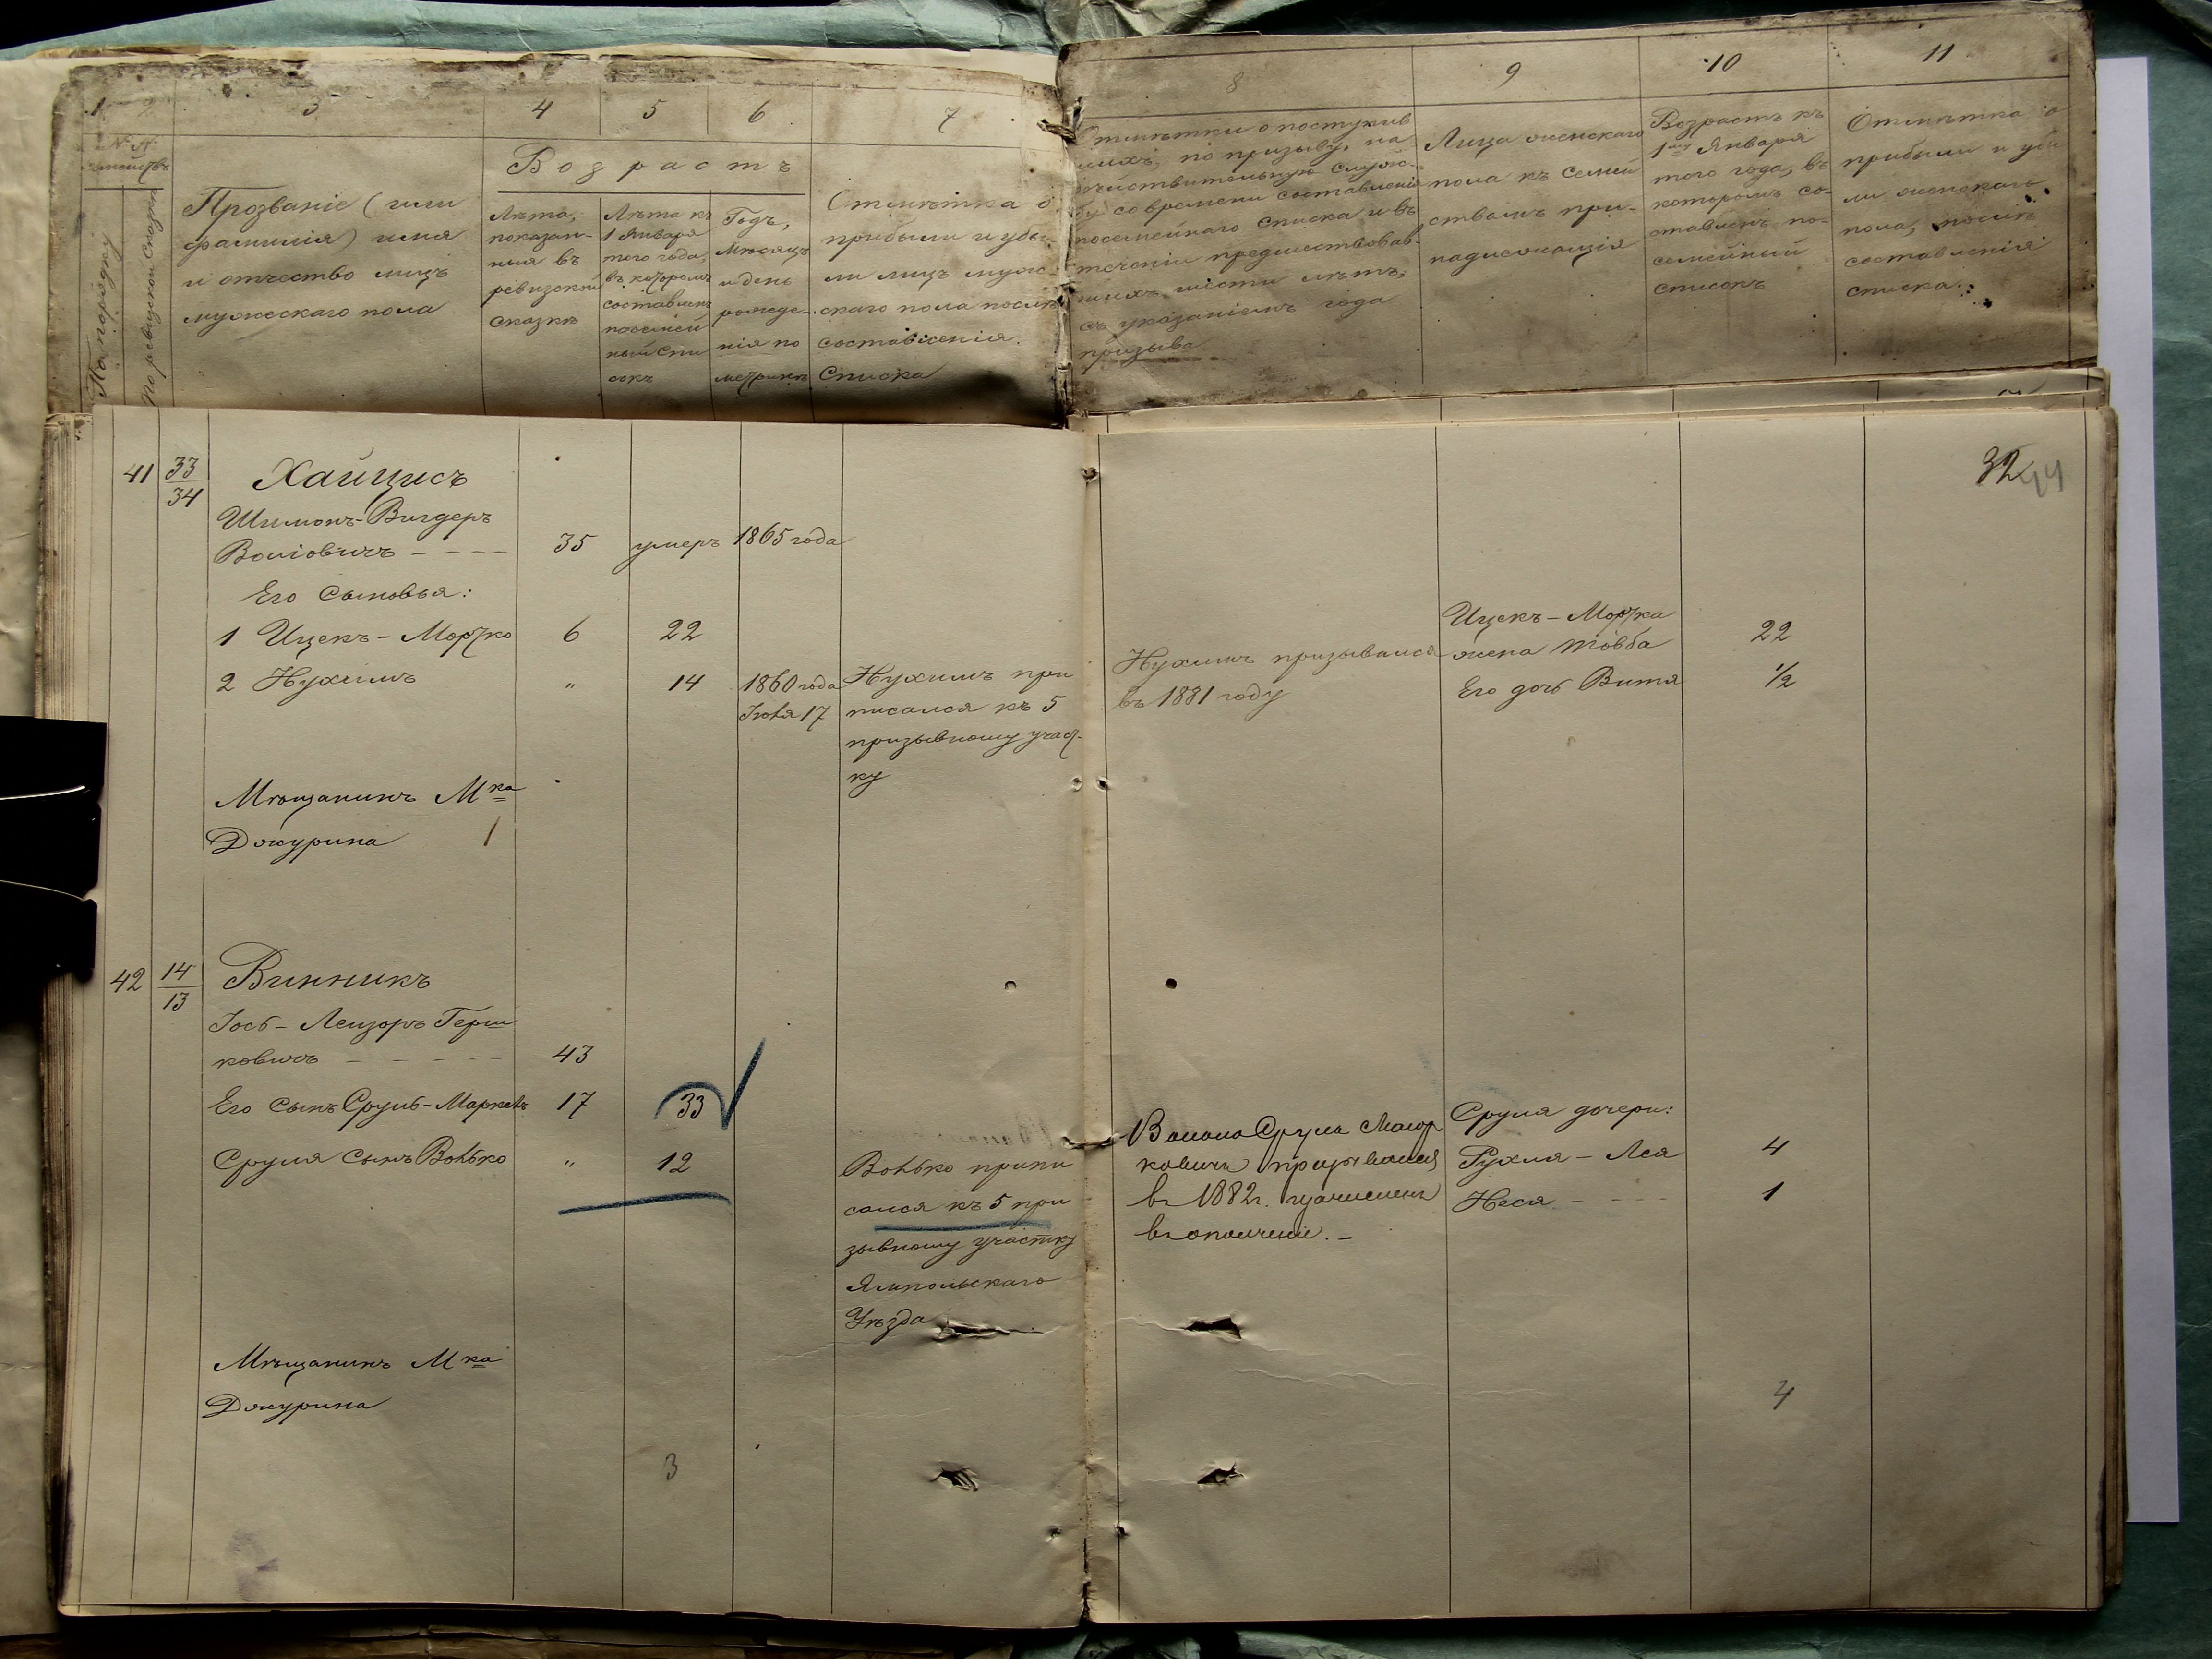 1
2
3
4
5
6
7
№ №
семействъ
По порядку
По ревизской сказкѣ
Прозваніе (или
фамилія) имя
и отчество лицъ
мужескаго пола
Возрастъ
Лѣта,
показан-
ныя въ
ревизской
сказкѣ
Лѣта къ
1 Января
того года,
въ которомъ
составленъ
посемей
ный спи
сокъ
Годъ,
мѣсяцъ
и день
рожде-
нія по
метрикѣ
Отмѣтка о
прибыли и убы
ли лицъ муже-
скаго пола послѣ
составленія
списка
8
9
10
11
Отмѣтки о поступив
шихъ, по призыву, на
дѣйствительную служ-
бу со времени составленія
посемейнаго списка и въ
теченіи предшествовав-
шихъ шести лѣтъ,
съ указаніемъ года
призыва
Лица женскаго
пола къ семей
ствамъ при-
надлежащія
Возрастъ къ
1му Января
того года, въ
которомъ со-
ставленъ по-
семейный
списокъ
Отмѣтка о
прибыли и убы
ли женскаго
пола, послѣ
составленія
списка
32
44
41
33
34
Хайцисъ
Шимонъ-Вигдеръ
Волiовичъ - - - -
35
умеръ
1865 года
Его сыновья:
1 Ицекъ-Мортко
6
22
2 Нухимъ
"
14
1860 года
Iюня 17
Нухимъ при
писался къ 5
призывному участ-
ку
Нухимъ призывался
въ 1881 году
Ицекъ-Мортка
жена Товба
22
Его дочь Витя
1/2
Мѣщанинъ Мка
Джурина
1
42
14
13
Винникъ
Iось-Лейзоръ Герш
ковичъ - - - - -
43
Его сынъ Сруль-Маркель
17
33
Сруля сынъ Волько
"
12
Волько припи
сался къ 5 при
зывному участку
Ямпольскаго
Уѣзда
ковичъ призывался
въ 1882г. зачисленъ
въ ополченіе. -
Сруля дочери:
Рухля-Лея
4
Неся - - - -
1
Мѣщанинъ Мка
Джурина
3
4